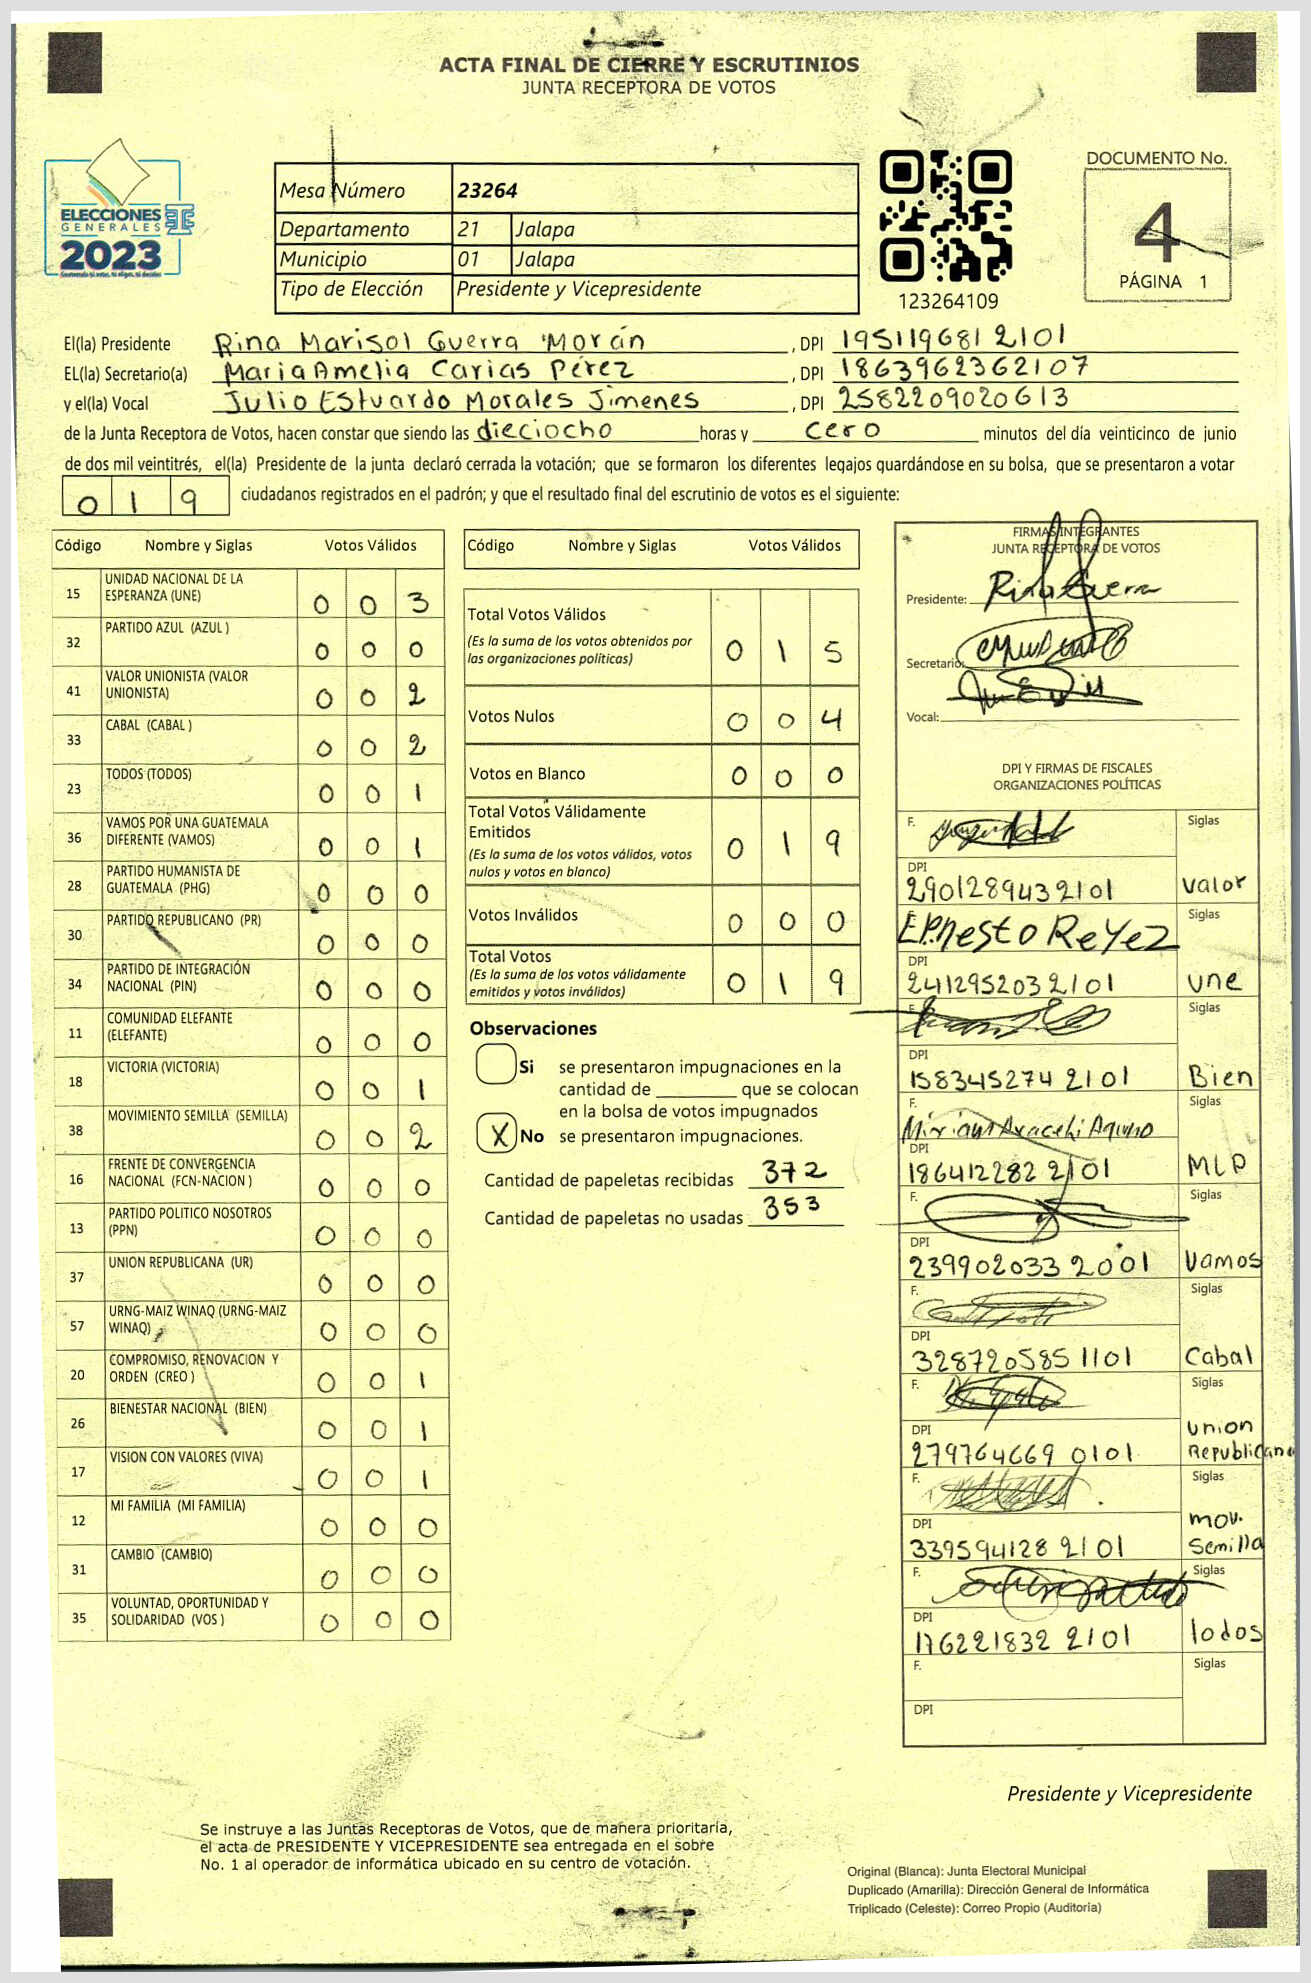 ACTA FINAL DE CIERRE Y ESCRUTINIOS
JUNTA RECEPTORA DE VOTOS
ELECCIONES
GENERALES
2023
Mesa Número 23264
Departamento 21 Jalapa
Municipio 01 Jalapa
Tipo de Elección Presidente y Vicepresidente
123264109
DOCUMENTO No.
4
PÁGINA 1
El(la) Presidente Rina Marisol Guerra Morán, DPI 195119681 2101
EL(la) Secretario(a) Maria Amelia Carias Pérez, DPI 1863962362107
y el(la) Vocal Julio Estuardo Morales Jimenes, DPI 2582209020613
de la Junta Receptora de Votos, hacen constar que siendo las dieciocho horas y cero minutos del día veinticinco de junio
de dos mil veintitrés, el(la) Presidente de la junta declaró cerrada la votación; que se formaron los diferentes legajos guardándose en su bolsa, que se presentaron a votar
0 1 9 ciudadanos registrados en el padrón; y que el resultado final del escrutinio de votos es el siguiente:
Código Nombre y Siglas Votos Válidos
15 UNIDAD NACIONAL DE LA ESPERANZA (UNE) 0 0 3
32 PARTIDO AZUL (AZUL ) 0 0 0
41 VALOR UNIONISTA (VALOR UNIONISTA) 0 0 2
33 CABAL (CABAL ) 0 0 2
23 TODOS (TODOS) 0 0 1
36 VAMOS POR UNA GUATEMALA DIFERENTE (VAMOS) 0 0 1
28 PARTIDO HUMANISTA DE GUATEMALA (PHG) 0 0 0
30 PARTIDO REPUBLICANO (PR) 0 0 0
34 PARTIDO DE INTEGRACIÓN NACIONAL (PIN) 0 0 0
11 COMUNIDAD ELEFANTE (ELEFANTE) 0 0 0
18 VICTORIA (VICTORIA) 0 0 1
38 MOVIMIENTO SEMILLA (SEMILLA) 0 0 2
16 FRENTE DE CONVERGENCIA NACIONAL (FCN-NACION ) 0 0 0
13 PARTIDO POLITICO NOSOTROS (PPN) 0 0 0
37 UNION REPUBLICANA (UR) 0 0 0
57 URNG-MAIZ WINAQ (URNG-MAIZ WINAQ) 0 0 0
20 COMPROMISO, RENOVACION Y ORDEN (CREO ) 0 0 1
26 BIENESTAR NACIONAL (BIEN) 0 0 1
17 VISION CON VALORES (VIVA) 0 0 1
12 MI FAMILIA (MI FAMILIA) 0 0 0
31 CAMBIO (CAMBIO) 0 0 0
35 VOLUNTAD, OPORTUNIDAD Y SOLIDARIDAD (VOS ) 0 0 0
Código Nombre y Siglas Votos Válidos
Total Votos Válidos 0 1 5
(Es la suma de los votos obtenidos por
las organizaciones políticas)
Votos Nulos 0 0 4
Votos en Blanco 0 0 0
Total Votos Válidamente
Emitidos 0 1 9
(Es la suma de los votos válidos, votos
nulos y votos en blanco)
Votos Inválidos 0 0 0
Total Votos 0 1 9
(Es la suma de los votos válidamente
emitidos y votos inválidos)
Observaciones
Si se presentaron impugnaciones en la
cantidad de ________ que se colocan
en la bolsa de votos impugnados
X No se presentaron impugnaciones.
Cantidad de papeletas recibidas 372
Cantidad de papeletas no usadas 353
FIRMAS INTEGRANTES
JUNTA RECEPTORA DE VOTOS
Presidente: Rina Guerra
Secretario:
Vocal:
DPI Y FIRMAS DE FISCALES
ORGANIZACIONES POLÍTICAS
F. Siglas
DPI
290128943 2101 Valor
Ernesto Reyez Siglas
DPI
241295203 2101 une
F. Siglas
DPI
158345274 2101 Bien
F. Siglas
Miriam Araceli Aquino
DPI
186412282 2101 MLP
F. Siglas
DPI
239902033 2001 Vamos
F. Siglas
DPI
328720585 1101 Cabal
F. Siglas
DPI
279764669 0101 union Republicana
F. Siglas
DPI
339594128 2101 mov. Semilla
F. Siglas
DPI
176221832 2101 Todos
F. Siglas
DPI
Presidente y Vicepresidente
Se instruye a las Juntas Receptoras de Votos, que de manera prioritaria,
el acta de PRESIDENTE Y VICEPRESIDENTE sea entregada en el sobre
No. 1 al operador de informática ubicado en su centro de votación.
Original (Blanca): Junta Electoral Municipal
Duplicado (Amarilla): Dirección General de Informática
Triplicado (Celeste): Correo Propio (Auditoría)